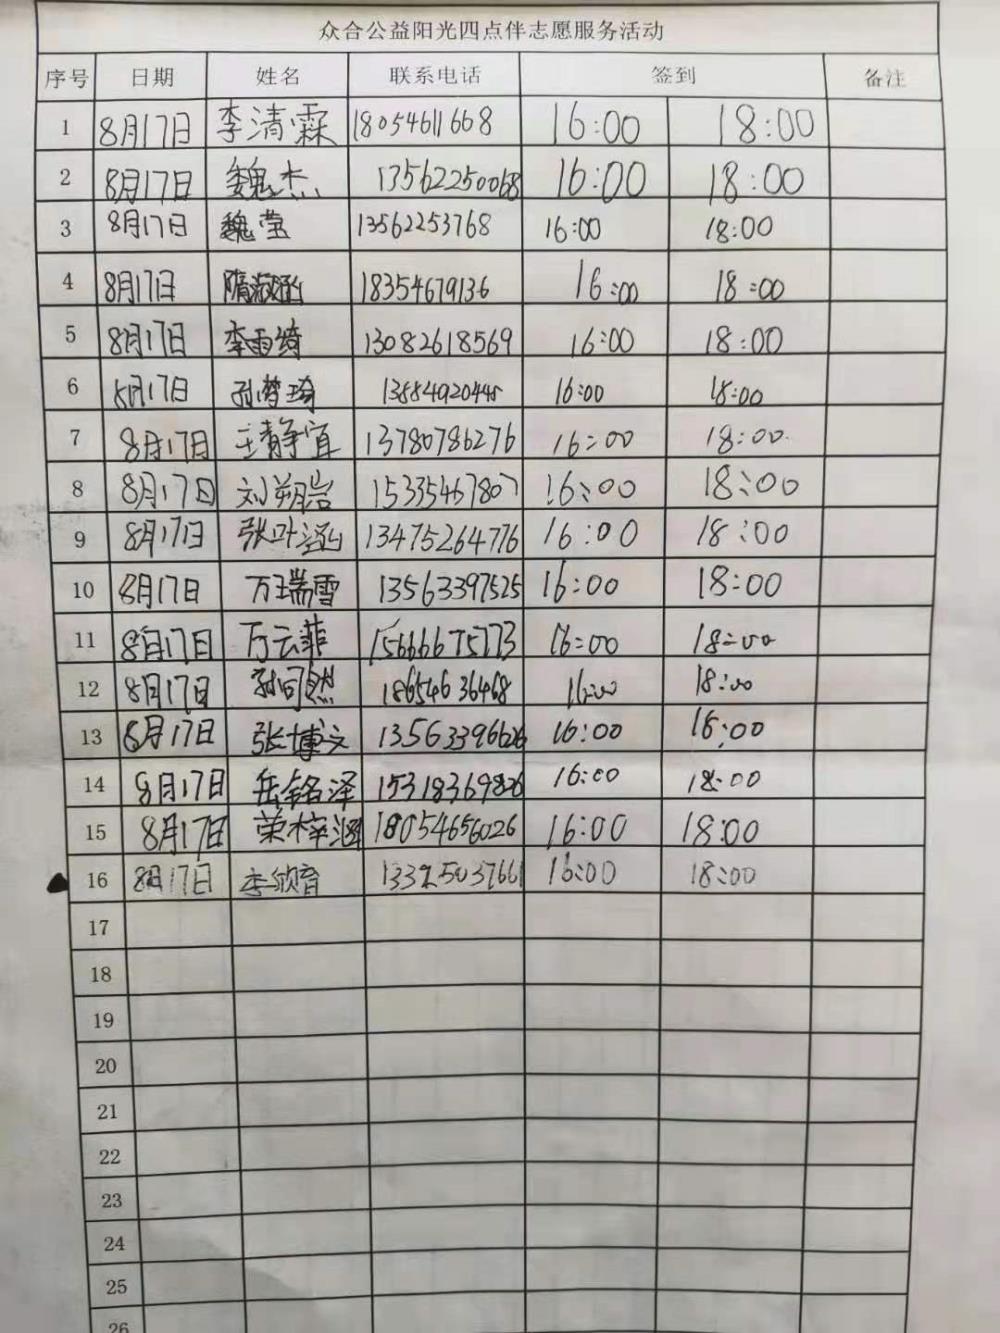 众合公益阳光四点伴志愿服务活动
序号 日期 姓名 联系电话 签到 备注
1 8月17日 李清霖 18054611668 16:00 18:00
2 8月17日 魏杰 13562250068 16:00 18:00
3 8月17日 魏莹 13562253768 16:00 18:00
4 8月17日 隋淑涵 18354679136 16:00 18:00
5 8月17日 李雨绮 13082618569 16:00 18:00
6 8月17日 孙梦琦 16:00 18:00
7 8月17日 王静宜 13780786276 16:00 18:00
8 8月17日 刘朔岩 15335467807 16:00 18:00
9 8月17日 张叶涵 13475264776 16:00 18:00
10 8月17日 万瑞雪 13563397525 16:00 18:00
11 8月17日 万云菲 15666675773 16:00 18:00
12 8月17日 孙可然 18654636468 16:00 18:00
13 8月17日 张博文 13563396626 16:00 18:00
14 8月17日 岳铭泽 15318369826 16:00 18:00
15 8月17日 荣梓涵 18054656026 16:00 18:00
16 8月17日 李欣育 13325037661 16:00 18:00
17
18
19
20
21
22
23
24
25
26